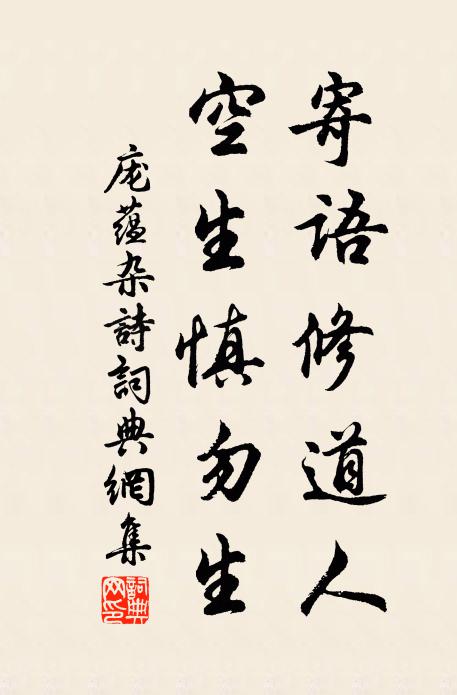 寄语修道人
空生慎勿生
庞蕴杂詩詞典網集
詞典网印